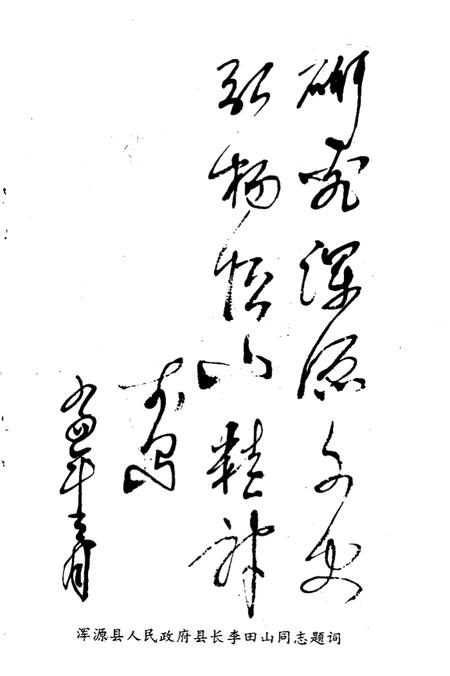 研究浑源文史
弘扬恒山精神
李田山
九四年三月
浑源县人民政府县长李田山同志题词